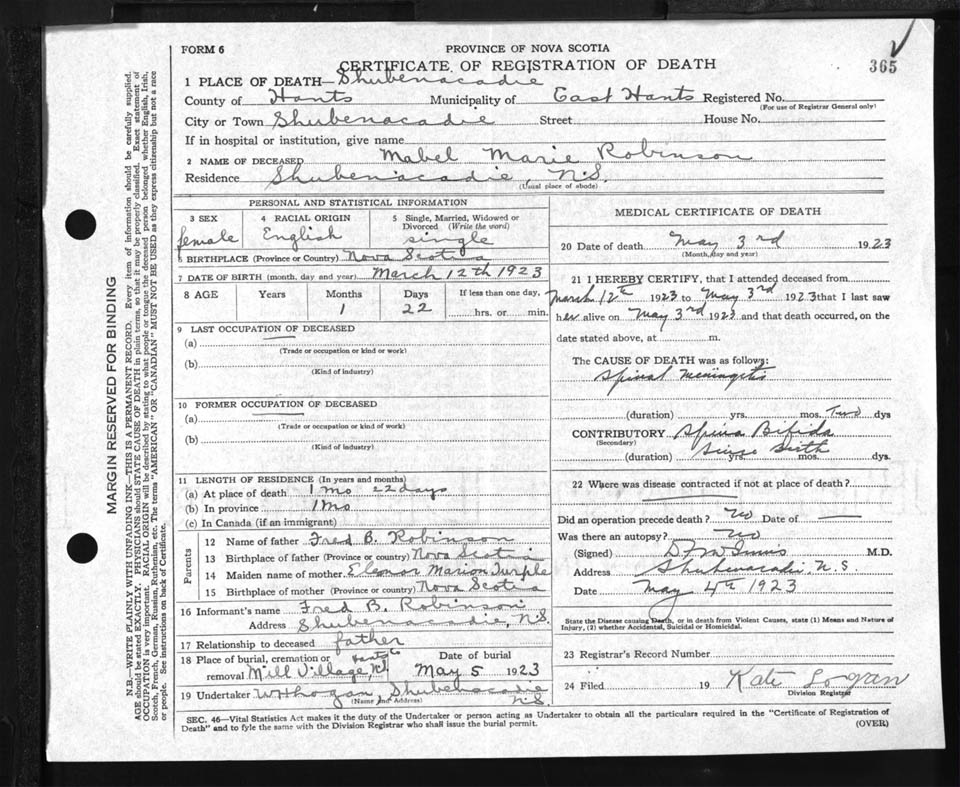 FORM 6
PROVINCE OF NOVA SCOTIA
CERTIFICATE OF REGISTRATION OF DEATH
365
1 PLACE OF DEATH—Shubenacadie
County of Hants Municipality of East Hants Registered No.
(For use of Registrar General only)
City or Town Shubenacadie Street House No.
If in hospital or institution, give name
2 NAME OF DECEASED Mabel Marie Robinson
Residence Shubenacadie, N.S.
(Usual place of abode)
PERSONAL AND STATISTICAL INFORMATION
3 SEX 4 RACIAL ORIGIN 5 Single, Married, Widowed or Divorced (Write the word)
female English single
6 BIRTHPLACE (Province or Country) Nova Scotia
7 DATE OF BIRTH (month, day and year) March 12th 1923
8 AGE Years Months Days If less than one day,
1 22 hrs. or min.
9 LAST OCCUPATION OF DECEASED
(a) —
(Trade or occupation or kind or work)
(b)
(Kind of industry)
10 FORMER OCCUPATION OF DECEASED
(a) —
(Trade or occupation or kind of work)
(b)
(Kind of industry)
11 LENGTH OF RESIDENCE (In years and months)
(a) At place of death 1 mo 22 days
(b) In province 1 mo
(c) In Canada (if an immigrant)
Parents
12 Name of father Fred B. Robinson
13 Birthplace of father (Province or country) Nova Scotia
14 Maiden name of mother Eleanor Marion Turple
15 Birthplace of mother (Province or country) Nova Scotia
16 Informant's name Fred B. Robinson
Address Shubenacadie, N.S.
17 Relationship to deceased father
18 Place of burial, cremation or removal Mill Village, Hants Co N.S.
Date of burial May 5 1923
19 Undertaker Shubenacadie N.S.
(Name and Address)
MEDICAL CERTIFICATE OF DEATH
20 Date of death May 3rd 1923
(Month, day and year)
21 I HEREBY CERTIFY, that I attended deceased from
March 12th 1923 to May 3rd 1923 that I last saw
her alive on May 3rd 1923 and that death occurred, on the
date stated above, at m.
The CAUSE OF DEATH was as follows:
Spinal Meningitis
(duration) yrs. mos. Two dys
CONTRIBUTORY Spina Bifida
(Secondary)
since birth
yrs. mos. dys.
22 Where was disease contracted if not at place of death?
Did an operation precede death? No Date of —
Was there an autopsy? No
(Signed) M.D.
Address Shubenacadie, N.S.
Date May 4th 1923
State the Disease causing Death, or in death from Violent Causes, state (1) Means and Nature of
Injury, (2) whether Accidental, Suicidal or Homicidal.
23 Registrar's Record Number
24 Filed 19 Kate Logan
Division Registrar
SEC. 46—Vital Statistics Act makes it the duty of the Undertaker or person acting as Undertaker to obtain all the particulars required in the "Certificate of Registration of
Death" and to fyle the same with the Division Registrar who shall issue the burial permit. (OVER)
MARGIN RESERVED FOR BINDING
N.B.—WRITE PLAINLY WITH UNFADING INK—THIS IS A PERMANENT RECORD. Every item of information should be carefully supplied.
AGE should be stated EXACTLY. PHYSICIANS should STATE CAUSE OF DEATH in plain terms, so that it may be properly classified. Exact statement of
OCCUPATION is very important. RACIAL ORIGIN will be described by stating to what people or tongue the deceased person belonged whether English, Irish,
Scotch, French, German, Russian, Ruthenian, etc. The terms "AMERICAN" OR "CANADIAN" MUST NOT BE USED as they express citizenship but not a race
or people. See instructions on back of Certificate.